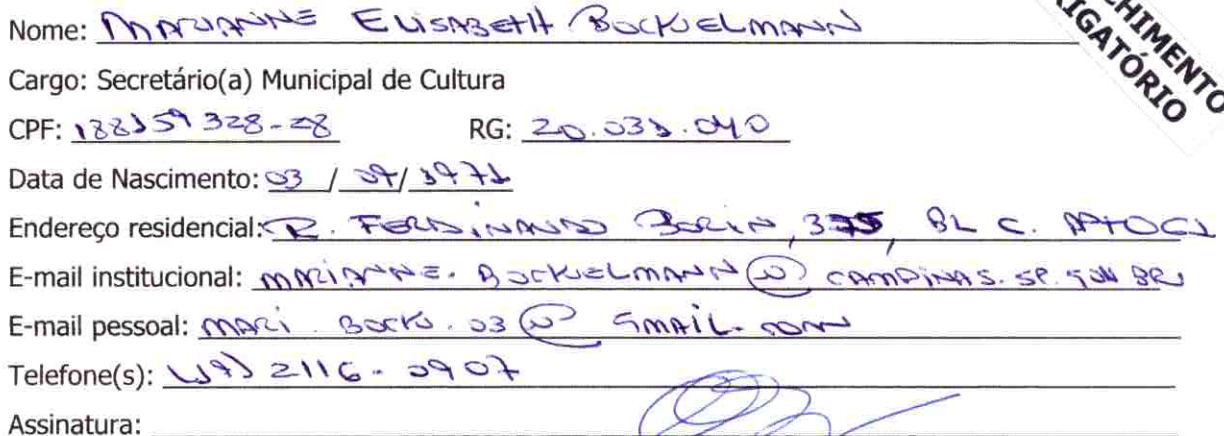 PREENCHIMENTO
OBRIGATÓRIO
Nome: MARIANNE ELISABETH BOCKELMANN
Cargo: Secretário(a) Municipal de Cultura
CPF: 188159328-28 RG: 20.031.040
Data de Nascimento: 03 / 07/ 1971
Endereço residencial: R. FERDINANDO 375, BL C. APTO
E-mail institucional: MARIANNE.BOCKELMANN@CAMPINAS.SP.GOV.BR
E-mail pessoal: MARI.BOCK.03@GMAIL.COM
Telefone(s): (19) 2116-0907
Assinatura: